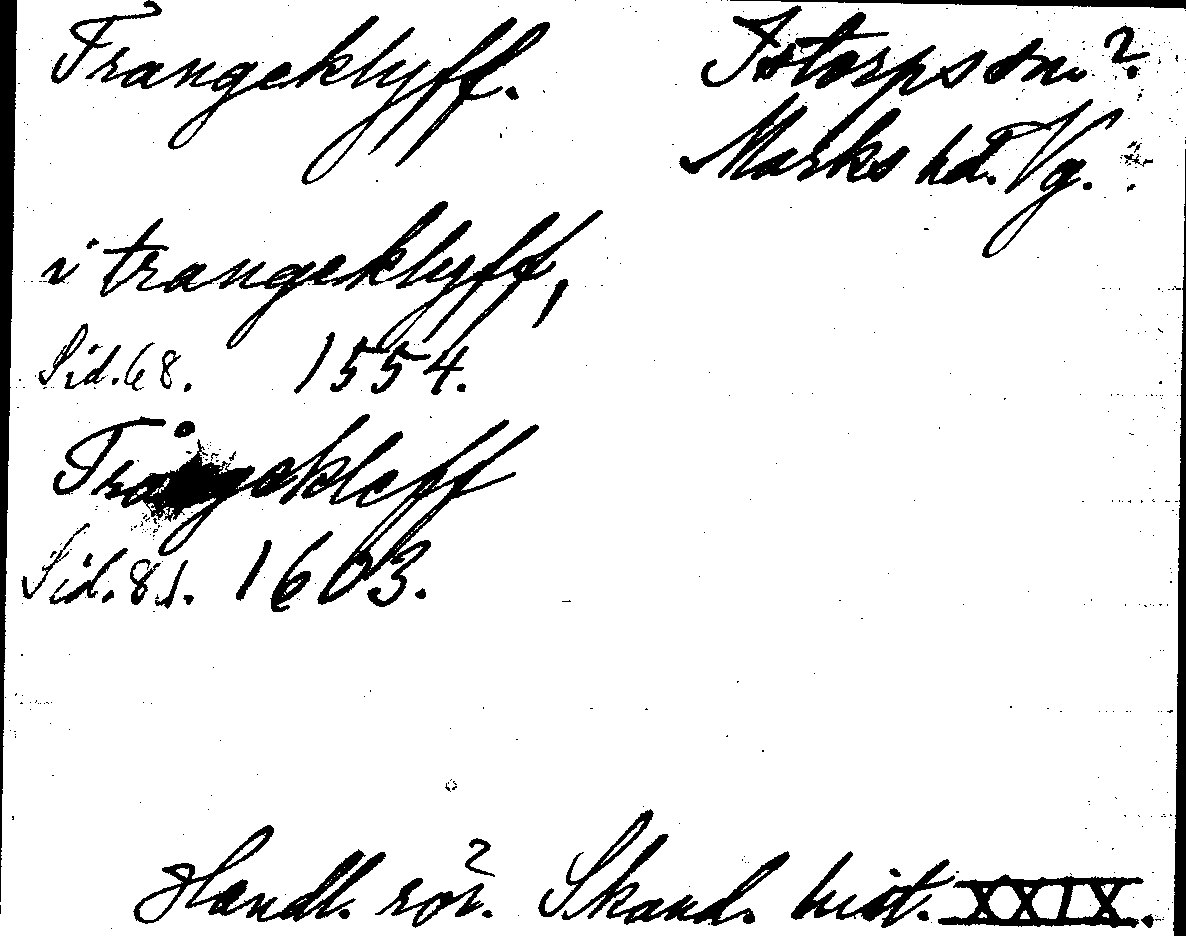 Trangeklyff. Istorps sn.?
Marks hd. Vg.
i trangeklyff,
Sid. 68. 1554.
Trångekleff
Sid. 81. 1603.
Handl. rör. Skand. hist. XXIX.